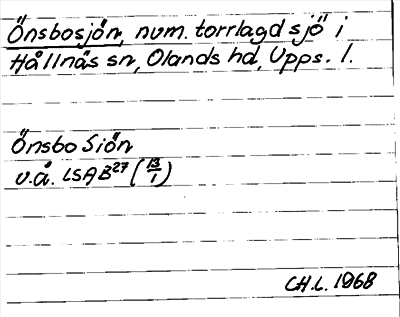 Önsbosjön, num. torrlagd sjö i
Hållnäs sn, Olands hd, Upps. l.
Önsbo Siön
u.å. LSA B27 (13/1)
CH.L. 1968